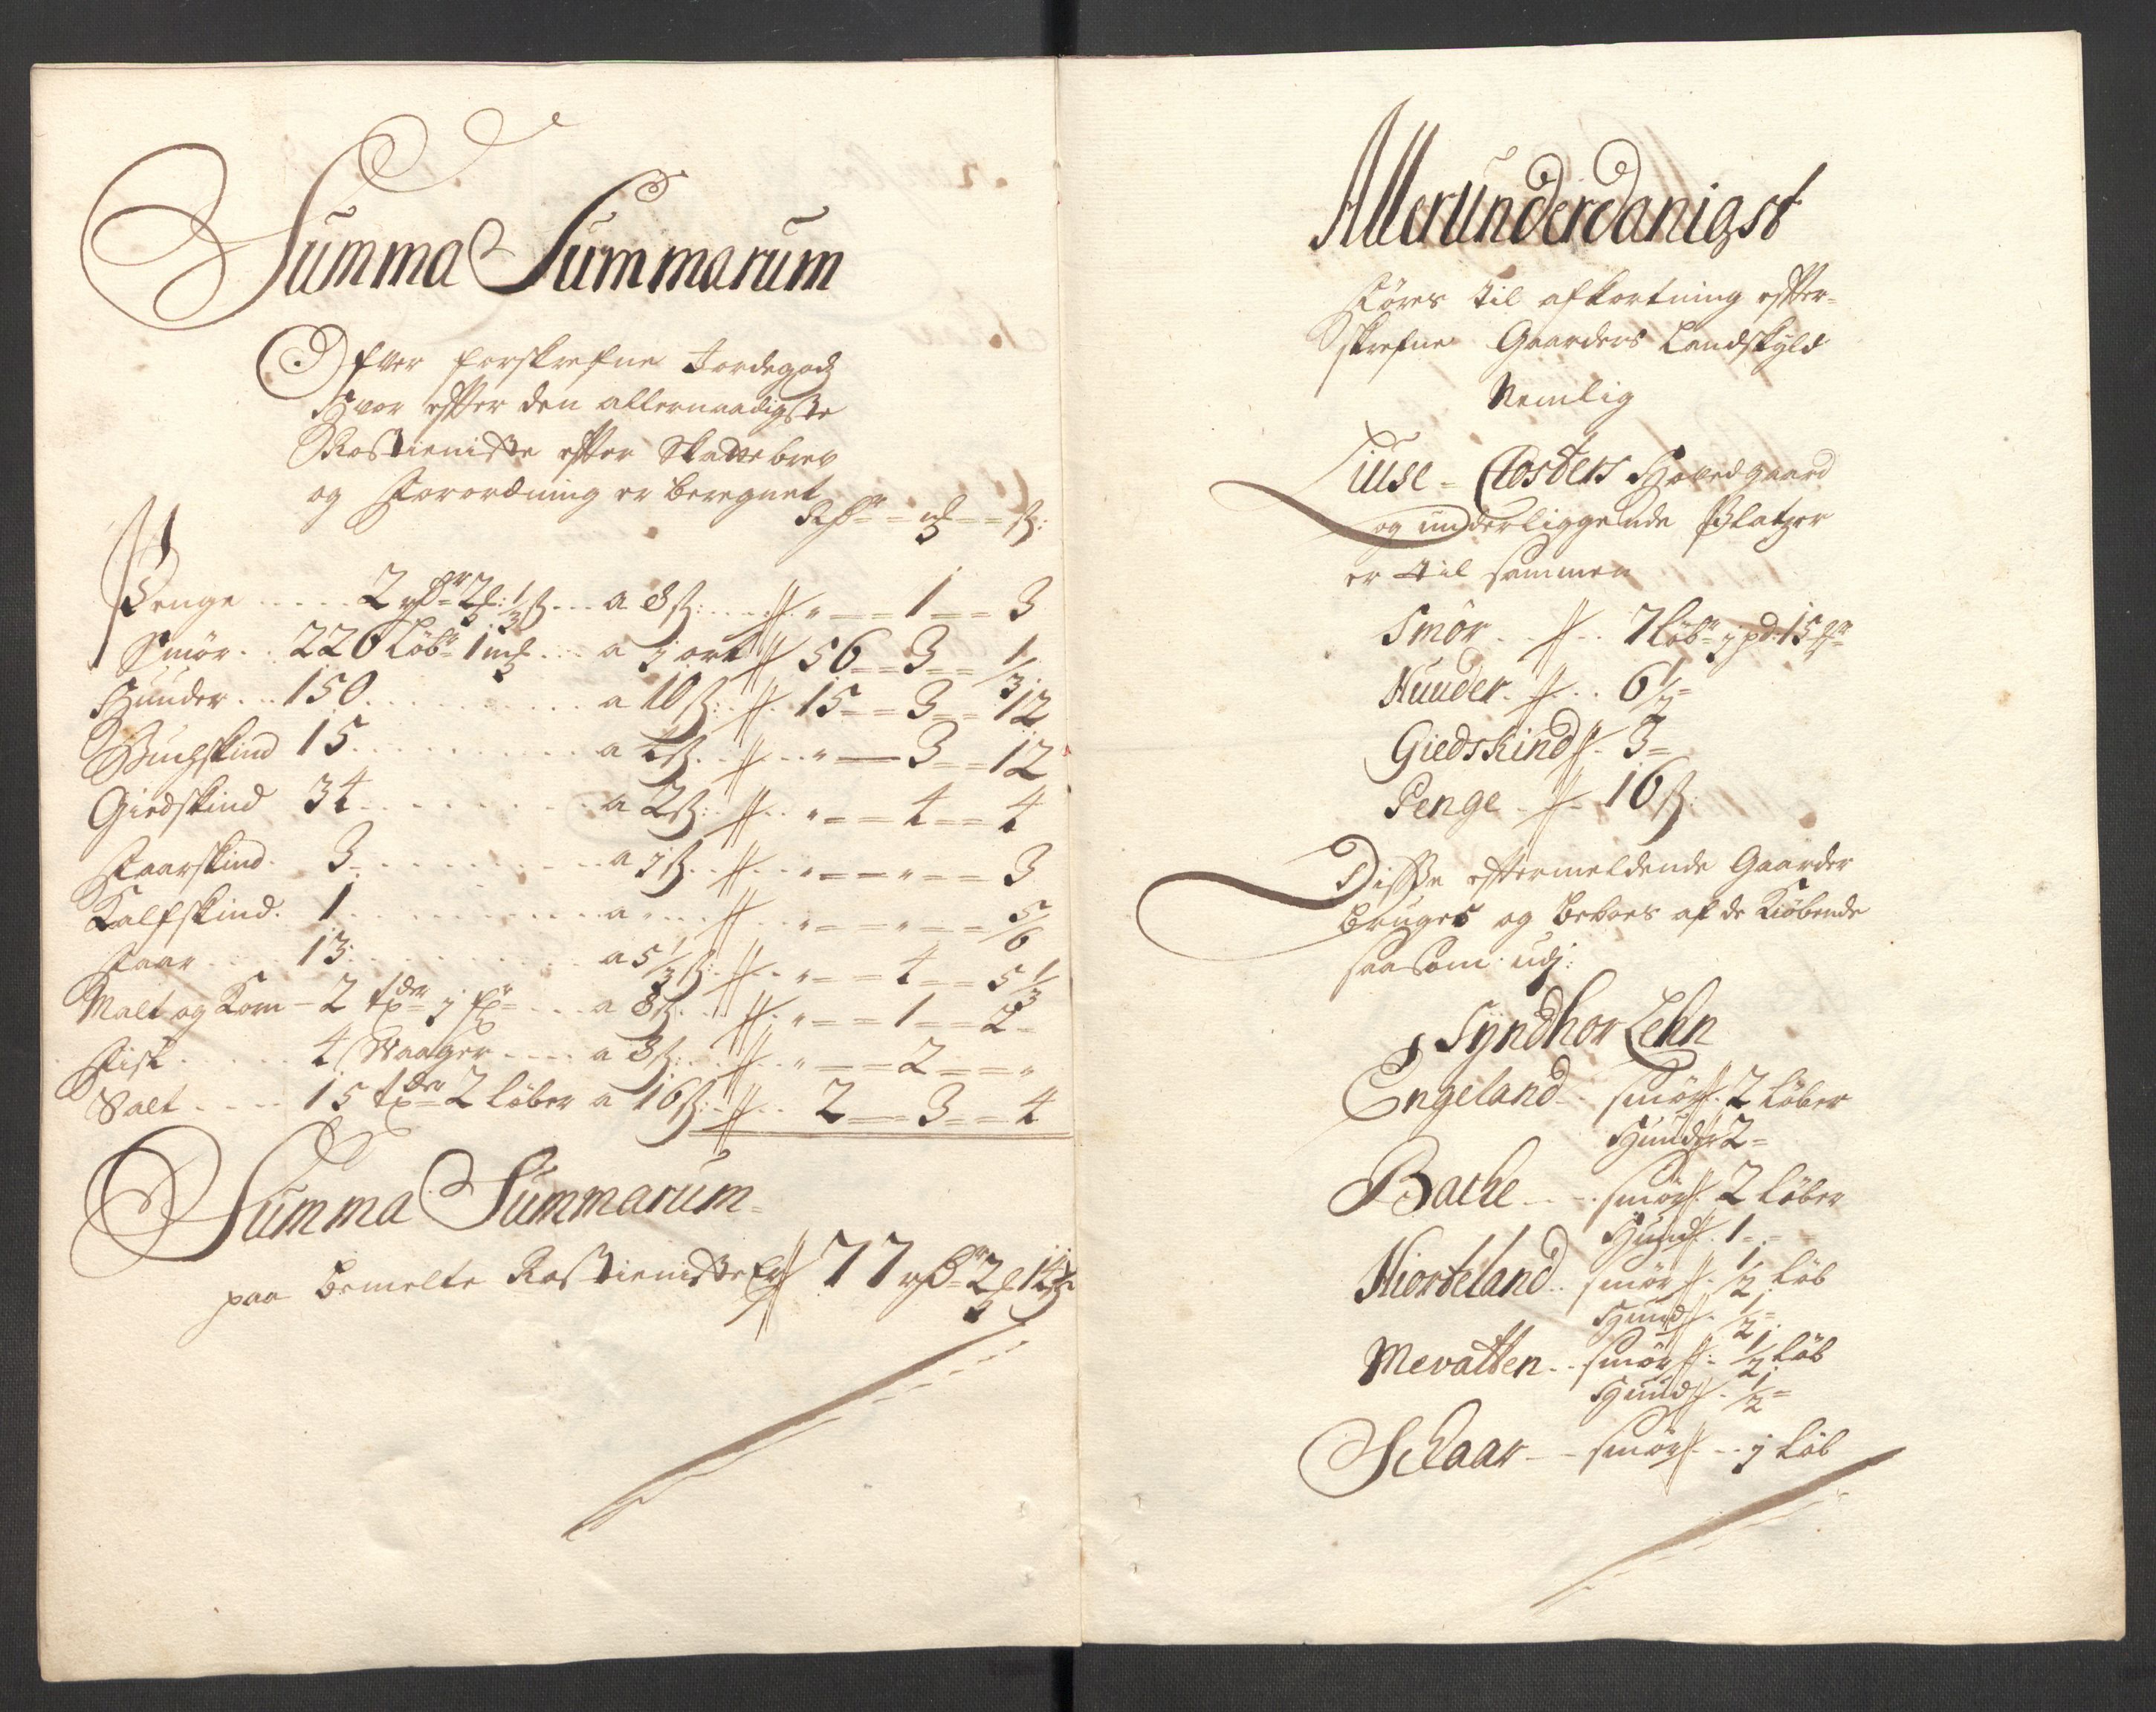 Summa Summarum
Ofver forskrefne Jordegodz
Hvor efter den allernaadigste
Rostieniste efter Skattebrev
og Forordning er beregnet
Rdr = mk = ß:
Penge ..... 2 rdr 2 mk: 1/3 ß ... a 8 ß: ..... // " == 1 == 3
Smör .. 220 Löbr 1 mk ... a j ort // 56 == 3 == 1/3
Huuder ... 150 .......... a 10 ß: .. // . 15 == 3 == 12
Buchskind 15 .......... a 4 ß .. // ... " == 3 == 12
Giedskind 34 .......... a 2 ß: .. // .. " == 4 == 4
Faarskind . 3 .......... a j ß .. // .. " == " == 3
Kalfskind . 1 .......... a " ... // .. " == " == 5/6
Faar .... 13 .......... a 5 1/3 ß: // .. " == 4 == 5 1/3
Malt og Korn - 2 tdr j ... a 8 ß .. // . " == 1 == 2
Fisk ..... 4 Waager .... a 8 ß: .. // .. " == 2 == "
Salt .... 15 tdr 2 löber a 16 ß: // .. 2 == 3 == 4
Summa Summarum
paa bemelte Rostieniste er // 77 rdr 2 mk 14 ß
Allerunderdanigst
Föres til afkortning efter=
skrefne Gaarders Landskyld
Nemlig
Liuse - Closters Hovedgaard
og underliggende Platzer
er til sammen
Smör .. // .. 7 Löbr j pd: 15 mr
Huuder . // .. 6 1/2 =
Giedskind // . 3 =
Penge .. // .. 16 ß:
Disse eftermeldende Gaarder
bruges og beboes af de Kiöbende
saasom udj:
Syndhor Lehn
Engeland .. smör // . 2 Löber
Huuder 2 =
Bache ... smör // . 2 Löber
Huud // . 1 =
Hiorteland .. smör // . 1/2 Löb
Huud // . 1/2 =
Mevatten .. smör // : 1/2 Löb
Huud // . 1/2 =
Schaar .. smör // ... j Löb